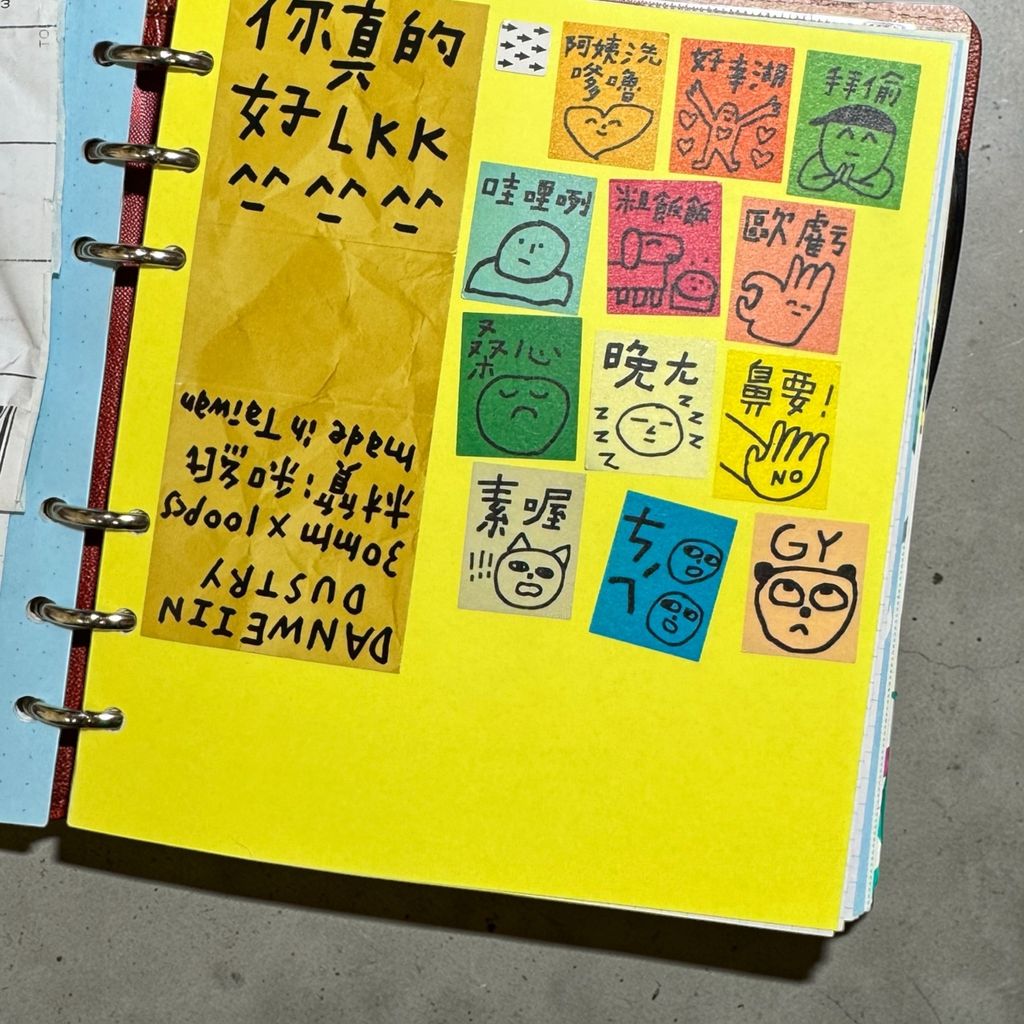 你真的
好LKK
^_^ ^_^ ^_^
DANWEIIN
DUSTRY
30mm x 100pcs
材質:和紙
made in Taiwan
阿姨洗
嗲嚕
好幸湖
拜偷
哇哩咧
粗飯飯
歐虧
桑心
晚ㄤ
z z z z z z
鼻要!
NO
素喔
!!!
ㄘㄟˋ
GY